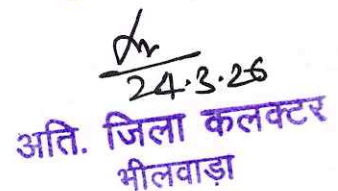 24.3.26
अति. जिला कलक्टर
भीलवाड़ा